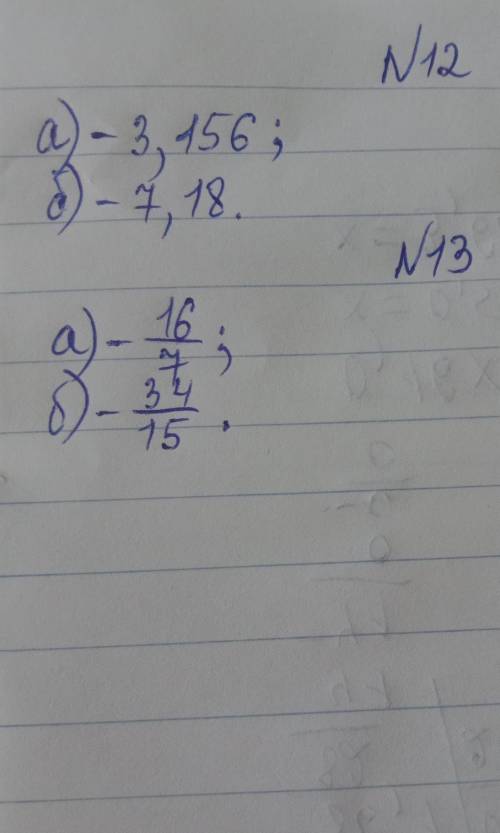 N12
а) - 3,156;
б) - 7,18.
N13
а) - 16/7;
б) - 34/15.